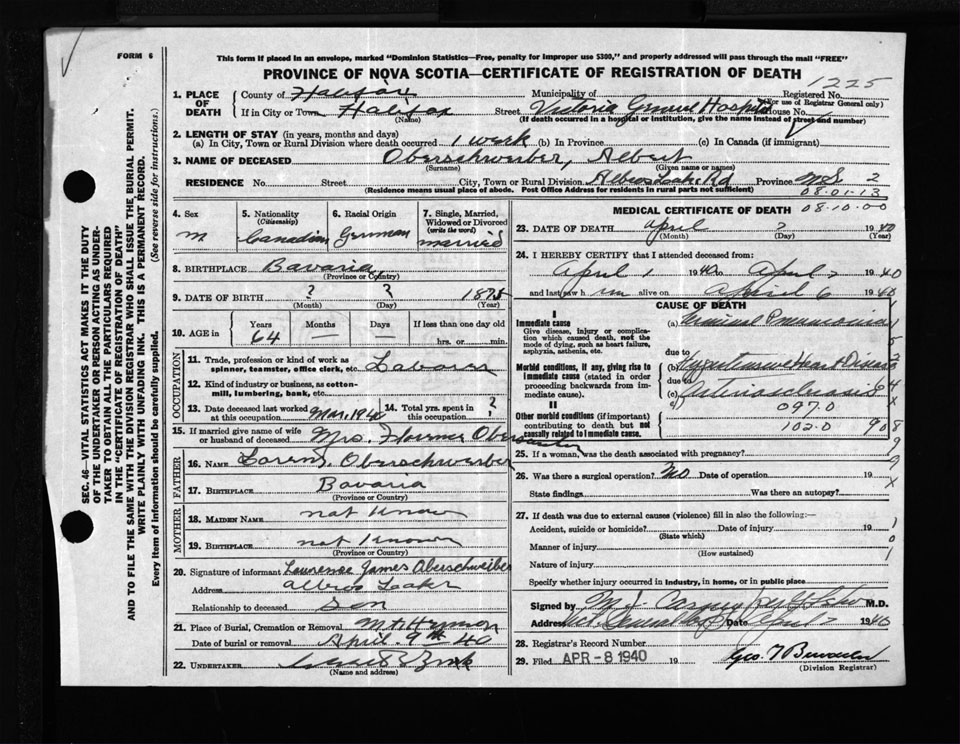 FORM 6
This form if placed in an envelope, marked "Dominion Statistics—Free, penalty for improper use $300," and properly addressed will pass through the mail "FREE"
PROVINCE OF NOVA SCOTIA—CERTIFICATE OF REGISTRATION OF DEATH
1225
1. PLACE OF DEATH
County of Halifax Municipality of Registered No.
(For use of Registrar General only)
If in City or Town Halifax Street Victoria General Hospital House No.
(Name) (If death occurred in a hospital or institution, give the name instead of street and number)
2. LENGTH OF STAY (in years, months and days)
(a) In City, Town or Rural Division where death occurred 1 week (b) In Province (c) In Canada (if immigrant)
3. NAME OF DECEASED Oberschweiber, Albert
(Surname) (Given name or names)
RESIDENCE No. Street City, Town or Rural Division Albros Lake Rd Province N.S. 2
(Residence means usual place of abode. Post Office Address for residents in rural parts not sufficient) 08-01-13
08-10-00
4. Sex M
5. Nationality (Citizenship) Canadian
6. Racial Origin German
7. Single, Married, Widowed or Divorced (write the word) married
8. BIRTHPLACE Bavaria
(Province or Country)
9. DATE OF BIRTH ? ? 1875
(Month) (Day) (Year)
10. AGE in Years Months Days If less than one day old
64 — — hrs. or min.
OCCUPATION
11. Trade, profession or kind of work as spinner, teamster, office clerk, etc. Laborer
12. Kind of industry or business, as cotton-mill, lumbering, bank, etc.
13. Date deceased last worked at this occupation Mar. 1940 14. Total yrs. spent in this occupation ?
15. If married give name of wife or husband of deceased Mrs. Florence
FATHER
16. NAME Oberschweiber
17. BIRTHPLACE Bavaria
(Province or Country)
MOTHER
18. MAIDEN NAME not known
19. BIRTHPLACE not known
(Province or Country)
20. Signature of informant Lawrence James Oberschweiber
Address Albros Lake
Relationship to deceased Son
21. Place of Burial, Cremation or Removal Mt Hermon
Date of burial or removal April 9th 40
22. UNDERTAKER
(Name and address)
MEDICAL CERTIFICATE OF DEATH
23. DATE OF DEATH April 7 1940
(Month) (Day) (Year)
24. I HEREBY CERTIFY that I attended deceased from:
April 1 1940 to April 7 1940
and last saw him alive on April 6 1940
CAUSE OF DEATH
I
Immediate cause
Give disease, injury or complication which caused death, not the mode of dying, such as heart failure, asphyxia, asthenia, etc.
(a) Terminal Pneumonia
due to
Morbid conditions, if any, giving rise to immediate cause (stated in order of proceeding backwards from immediate).
(b) Hypertensive Heart Disease
due to
(c) Arteriosclerosis
II
097.0
Other morbid conditions (if important) contributing to death but not causally related to immediate cause.
102.0 908
25. If a woman, was the death associated with pregnancy?
26. Was there a surgical operation? No Date of operation 19
State findings Was there an autopsy?
27. If death was due to external causes (violence) fill in also the following:—
Accident, suicide or homicide? Date of injury 19
(State which)
Manner of injury
(How sustained)
Nature of injury
Specify whether injury occurred in industry, in home, or in public place
Signed by M.D.
Address Vict. General Hosp. Date April 7 1940
28. Registrar's Record Number
29. Filed APR -8 1940 19
(Division Registrar)
SEC. 46—VITAL STATISTICS ACT MAKES IT THE DUTY
OF THE UNDERTAKER OR PERSON ACTING AS UNDER-
TAKER TO OBTAIN ALL THE PARTICULARS REQUIRED
IN THE "CERTIFICATE OF REGISTRATION OF DEATH"
AND TO FILE THE SAME WITH THE DIVISION REGISTRAR WHO SHALL ISSUE THE BURIAL PERMIT.
WRITE PLAINLY WITH UNFADING INK. THIS IS A PERMANENT RECORD.
Every item of information should be carefully supplied. (See reverse side for instructions.)